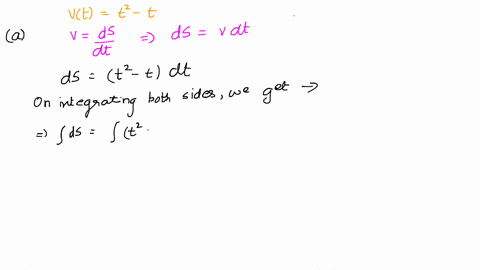 v(t) = t² - t
(a) v = ds/dt ⇒ ds = v dt
ds = (t² - t) dt
On integrating both sides, we get →
⇒ ∫ ds = ∫ (t²